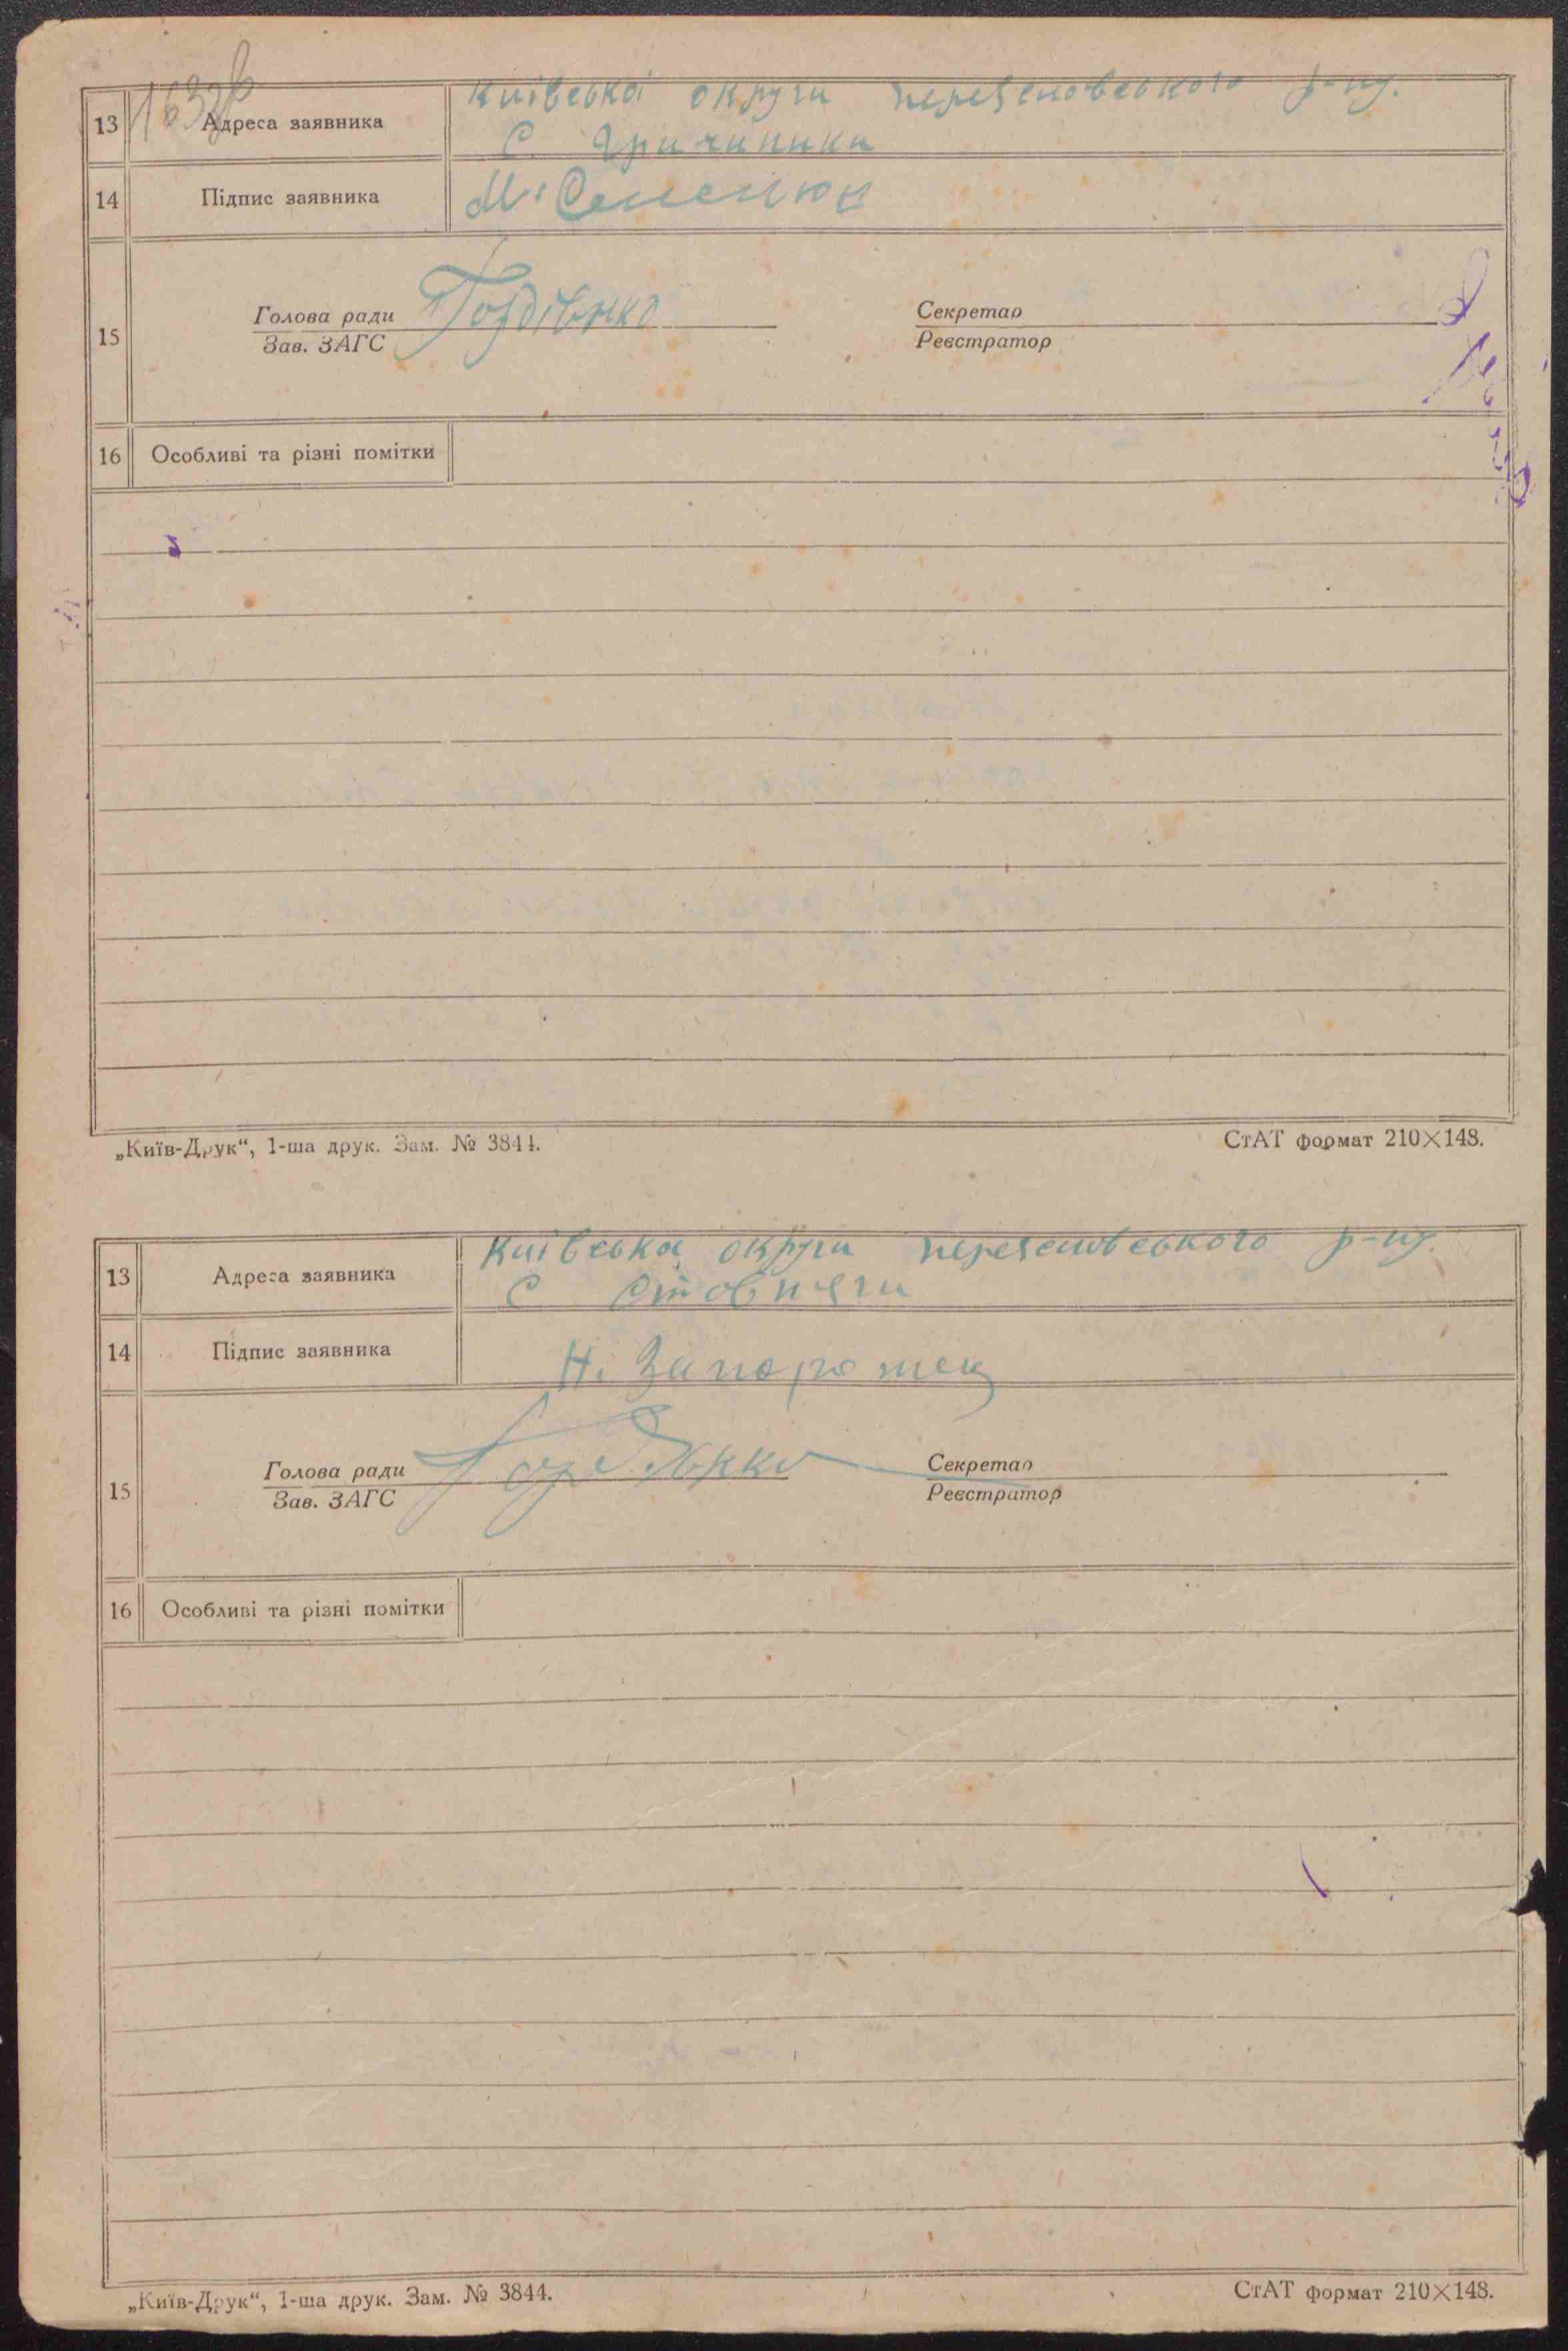 163зв
13 Адреса заявника Київської округи переясловського р-ну.
С. Гричиники
14 Підпис заявника М. Семенюк
15 Голова ради Гордієнко Секретар
Зав. ЗАГС Реєстратор
16 Особливі та різні помітки
„Київ-Друк“, 1-ша друк. Зам. № 3844. СтАТ формат 210×148.
13 Адреса заявника Київська округи переясловського р-ну.
С Стовпяги
14 Підпис заявника Н. Запорожец
15 Голова ради Секретар
Зав. ЗАГС Реєстратор
16 Особливі та різні помітки
„Київ-Друк“, 1-ша друк. Зам. № 3844. СтАТ формат 210×148.